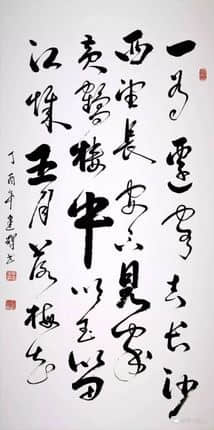 一為遷客去長沙
西望長安不見家
黃鶴樓中吹玉笛
江城五月落梅花
丁酉年建